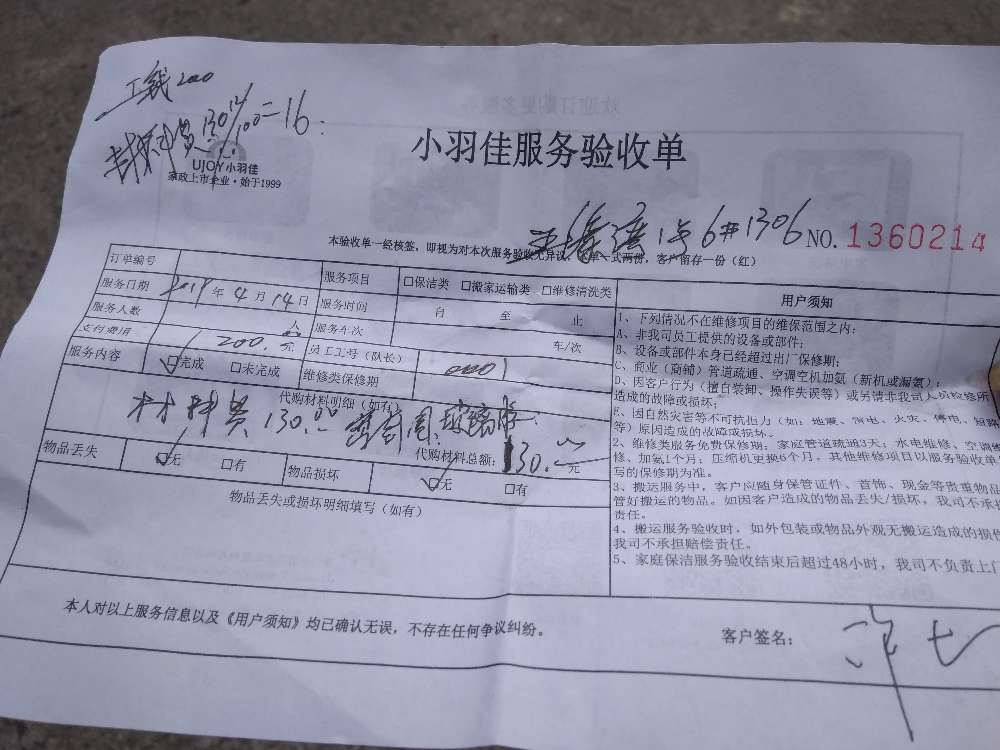 工钱200
材料费130 12/100=16
UJOY小羽佳
家政上市企业·始于1999
小羽佳服务验收单
1号6#1306
NO. 1360214
本验收单一经核签，即视为对本次服务验收无异议，本单一式两份，客户留存一份（红）
订单编号 服务项目 □保洁类 □搬家运输类 □维修清洗类
服务日期 2019年4月14日 服务时间 自 至 止
服务人数 人 服务车次 车/次
支付费用 200.元 员工工号（队长） 0001
服务内容 □完成 □未完成 维修类保修期
代购材料明细（如有）
材料费130.00 玻璃胶
代购材料总额：130.元
物品丢失 □无 □有 物品损坏 □无 □有
物品丢失或损坏明细填写（如有）
用户须知
1、下列情况不在维修项目的维保范围之内：
A、非我司员工提供的设备或部件；
B、设备或部件本身已经超过出厂保修期；
C、商业（商铺）管道疏通、空调空机加氨（新机或漏氨）；
D、因客户行为（擅自装卸、操作失误等）或另请非我司人员检修所
造成的故障或损坏；
E、因自然灾害等不可抗拒力（如：地震、雷电、火灾、停电、短路
等）原因造成的故障或损坏。
2、维修类服务免费保修期：家庭管道疏通3天；水电维修、空调维
修、加氨1个月；压缩机更换6个月，其他维修项目以服务验收单
写的保修期为准。
3、搬运服务中，客户应随身保管证件、首饰、现金等贵重物品
管好搬运的物品。如因客户造成的物品丢失/损坏，我司不承担
责任。
4、搬运服务验收时，如外包装或物品外观无搬运造成的损
我司不承担赔偿责任。
5、家庭保洁服务验收结束后超过48小时，我司不负责上门
本人对以上服务信息以及《用户须知》均已确认无误，不存在任何争议纠纷。
客户签名：